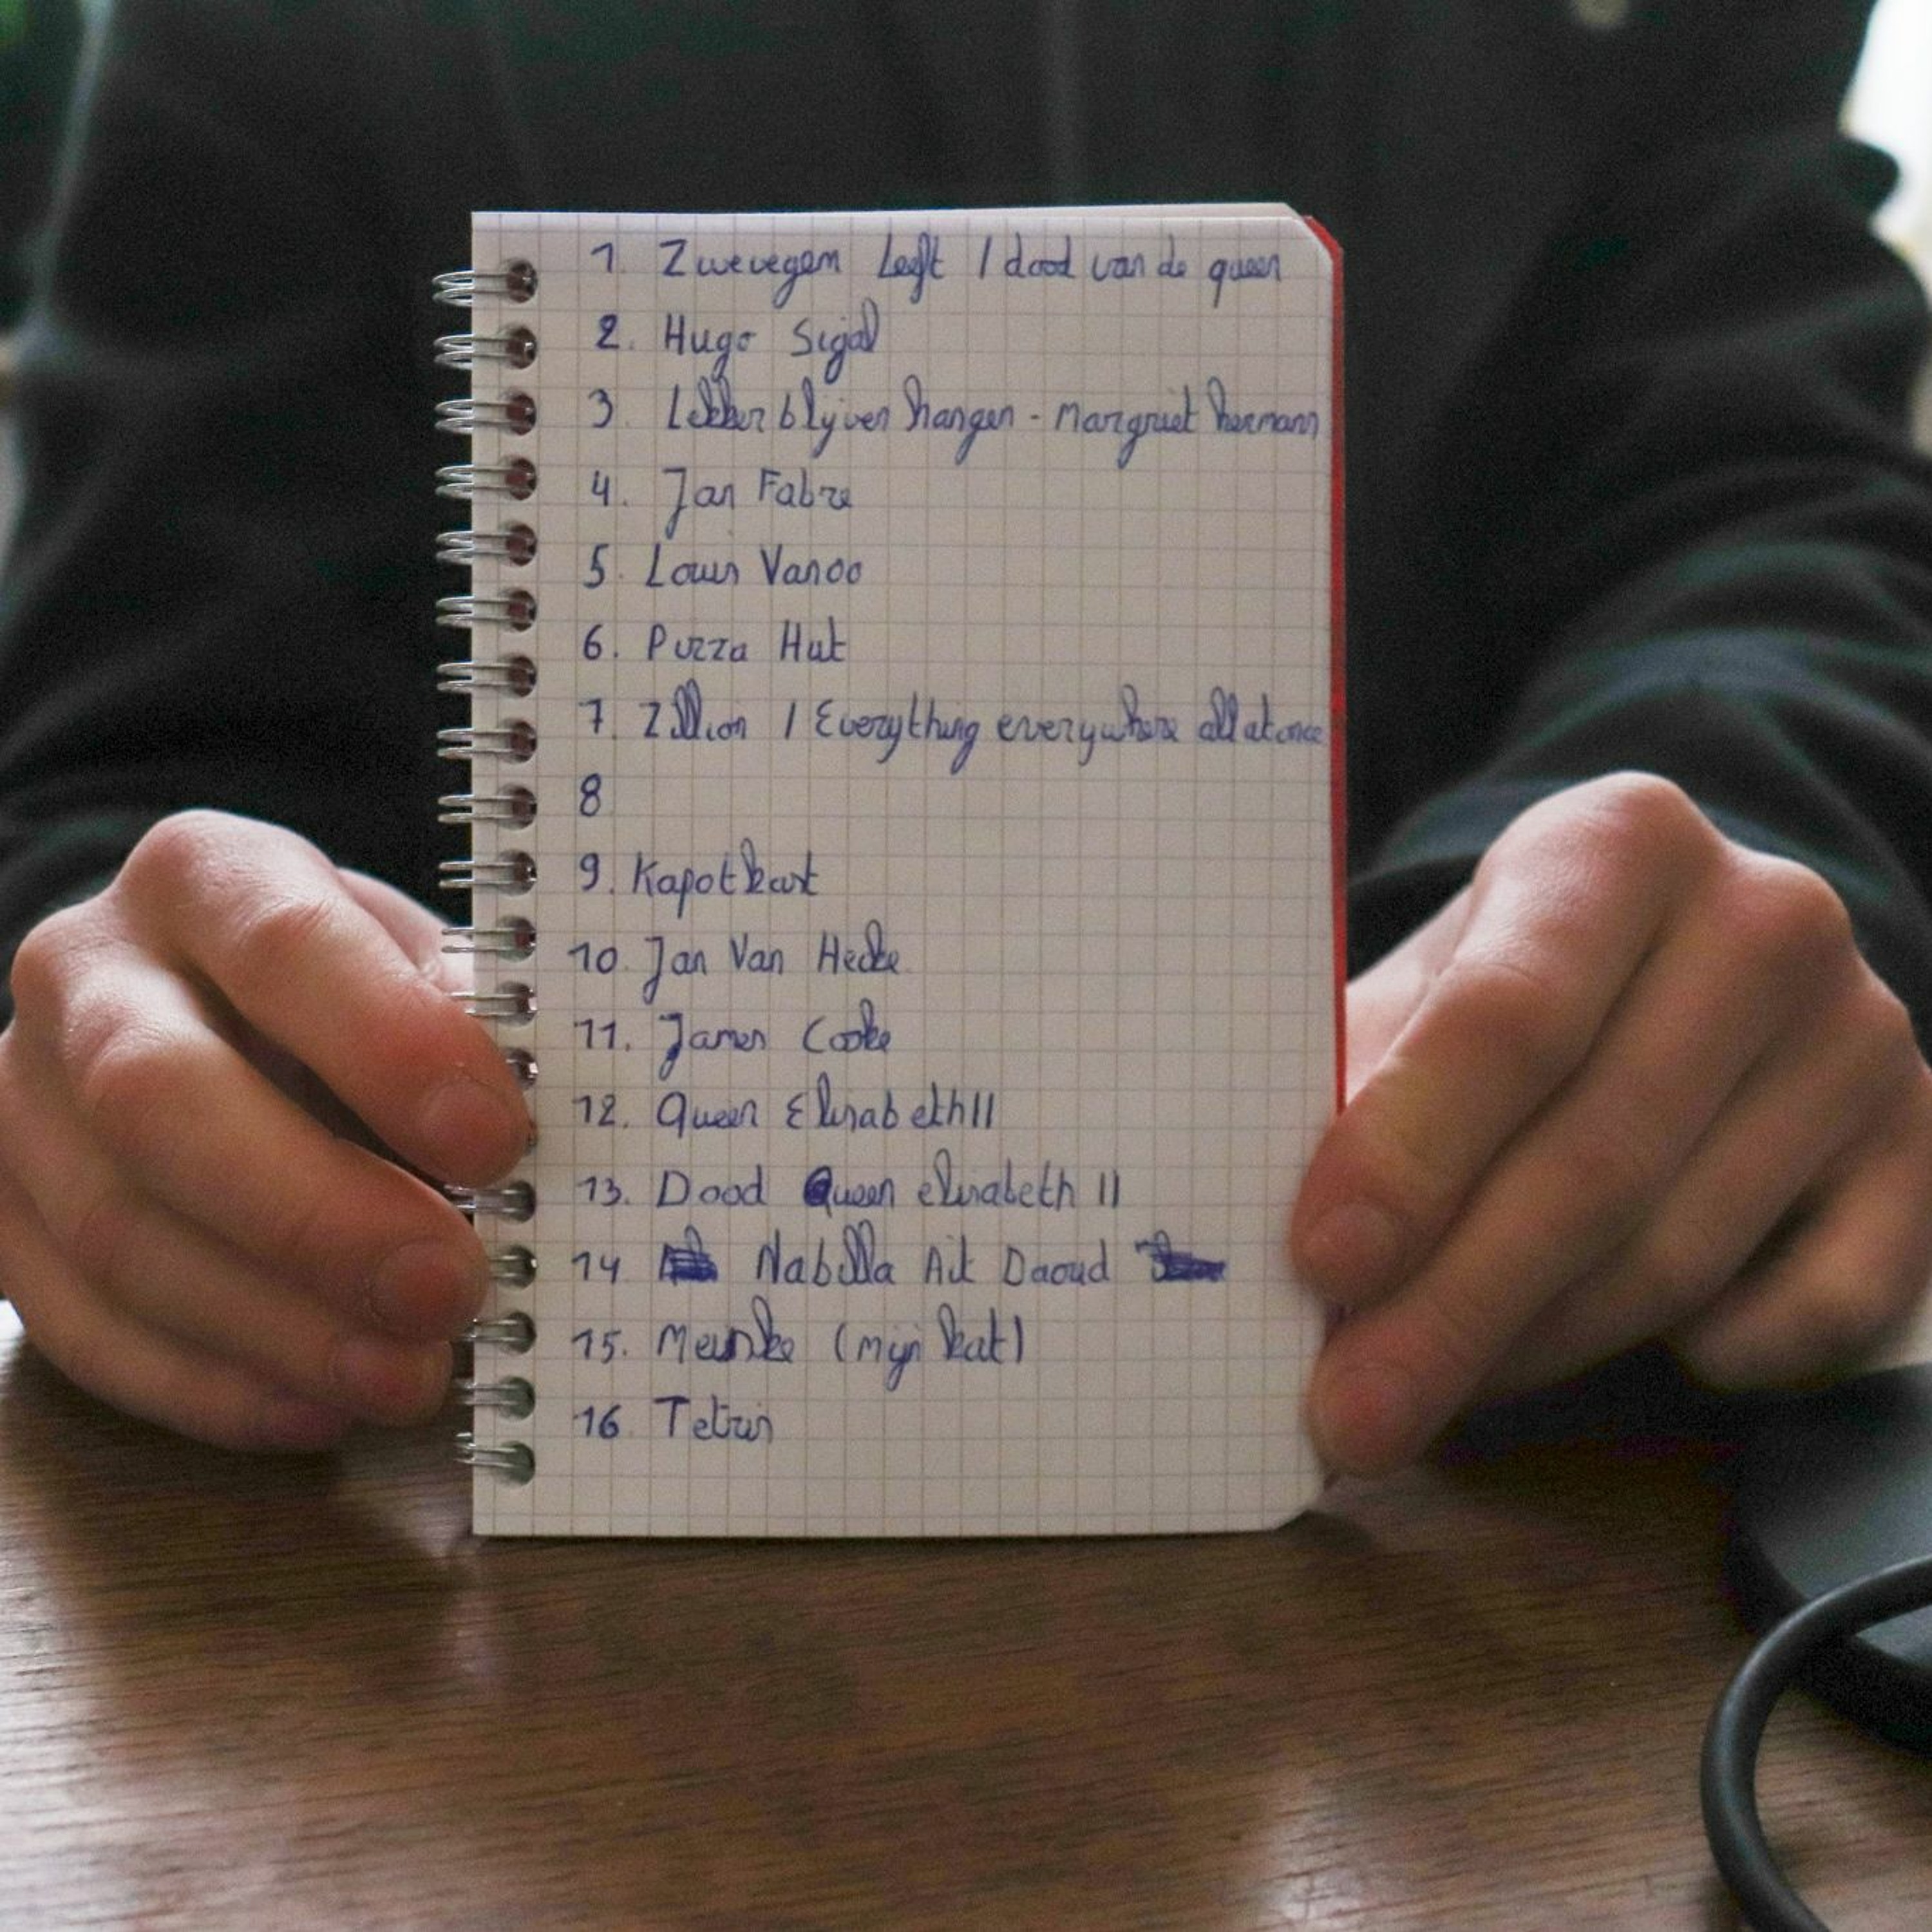 1. Zwevegem Leeft / dood van de queen
2. Hugo Sigal
3. Lekker blijven hangen - Margriet hermann
4. Jan Fabre
5. Louis Vanoo
6. Pizza Hut
7. Zillion / Everything everywhere all at once
8
9. Kapotkart
10. Jan Van Hecke
11. James Cooke
12. Queen Elisabeth II
13. Dood Queen elisabeth II
14 Nabilla Ait Daoud
15. Meinke (mijn kat)
16. Tetris